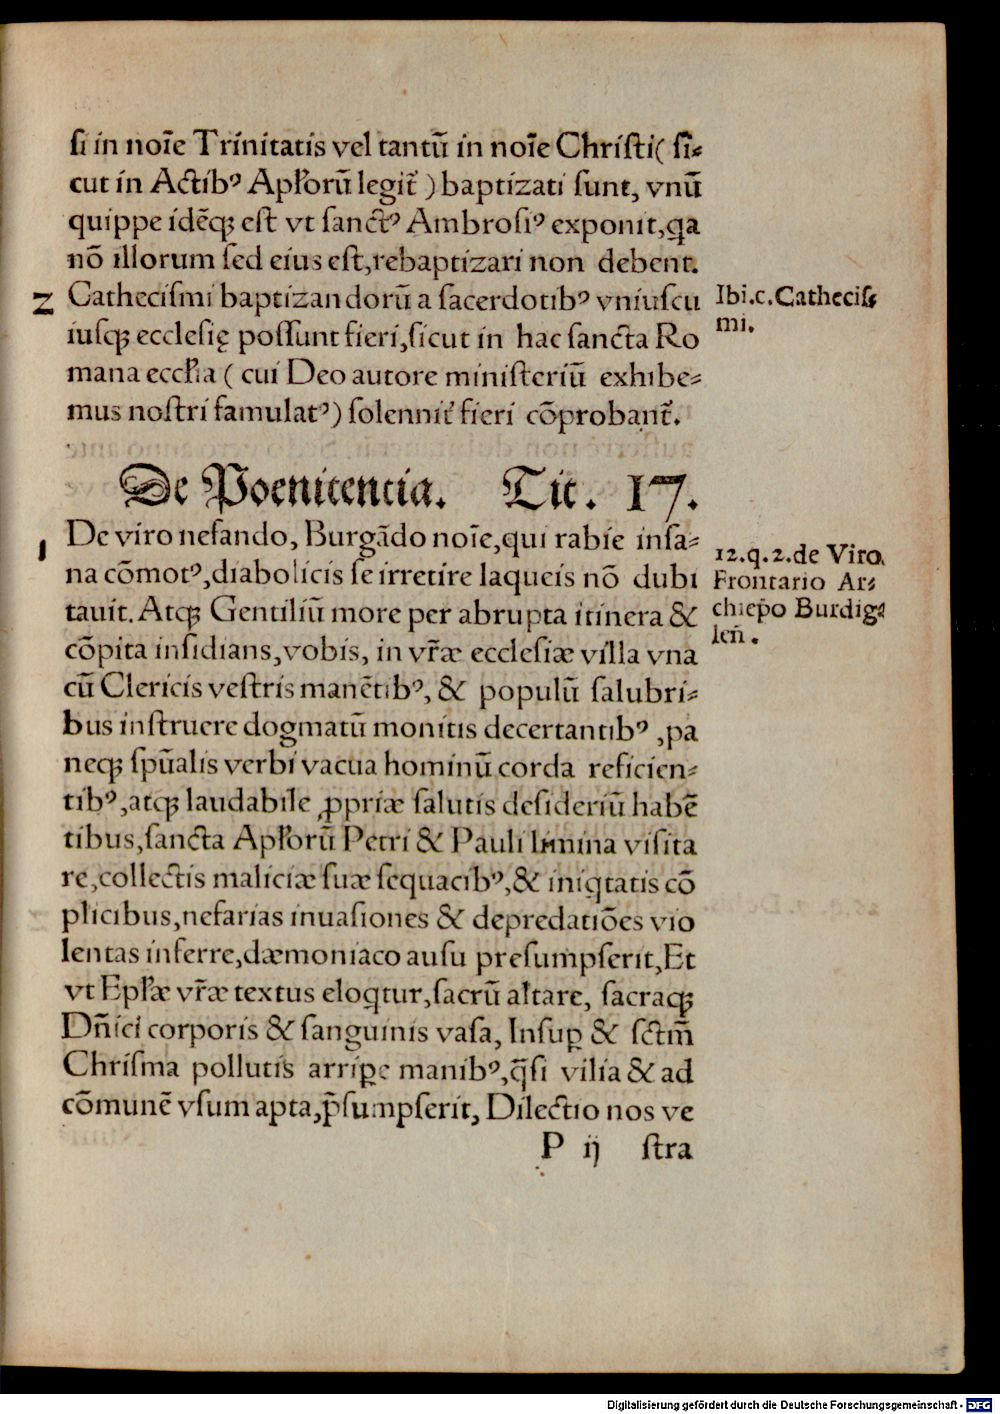 si in noīe Trinitatis vel tantū in noīe Christi( si⸗
cut in Actib⁹ Apꝉorū legit̃ )baptizati sunt, vnū
quippe idēqꝫ est vt sanct⁹ Ambrosi⁹ exponit,qa
nō illorum sed eius est,rebaptizari non debent.
2 Cathecismi baptizandorū a sacerdotib⁹ vniuscu
iusqꝫ ecclesię possunt fieri,sicut in hac sancta Ro
mana eccꝉia ( cui Deo autore ministeriū exhibe⸗
mus nostri famulat⁹) solennit̃ fieri cōprobant̃.
Ibi.c.Cathecis⸗
mi.
De Poenitentia. Tit. 17.
1 De viro nefando, Burgādo noīe,qui rabie insa⸗
na cōmot⁹,diabolicis se irretire laqueis nō dubi
tauit. Atqꝫ Gentiliū more per abrupta itinera &
cōpita insidians,vobis, in vr̃æ ecclesiæ villa vna
cū Clericis vestris manētib⁹, & populū salubri⸗
bus instruere dogmatū monitis decertantib⁹ ,pa
neqꝫ spūalis verbi vacua hominū corda reficien⸗
tib⁹,atqꝫ laudabile ꝓpriæ salutis desideriū habē
tibus,sancta Apꝉorū Petri & Pauli limina visita
re,collectis maliciæ suæ sequacib⁹,& iniqtatis cō
plicibus,nefarias inuasiones & depredatiōes vio
lentas inferre,dæmoniaco ausu presumpserit,Et
vt Epꝉæ vr̃æ textus eloqtur,sacrū altare, sacraqꝫ
Dñici corporis & sanguinis vasa, Insuꝑ & sctm̄
Chrisma pollutis arriꝑe manib⁹,q̄si vilia & ad
cōmunē vsum apta,p̄sumpserit, Dilectio nos ve
12.q.2.de Viro.
Frontario Ar⸗
chiep̄o Burdig⸗
leñ.
P ij stra
Digitalisierung gefördert durch die Deutsche Forschungsgemeinschaft - DFG